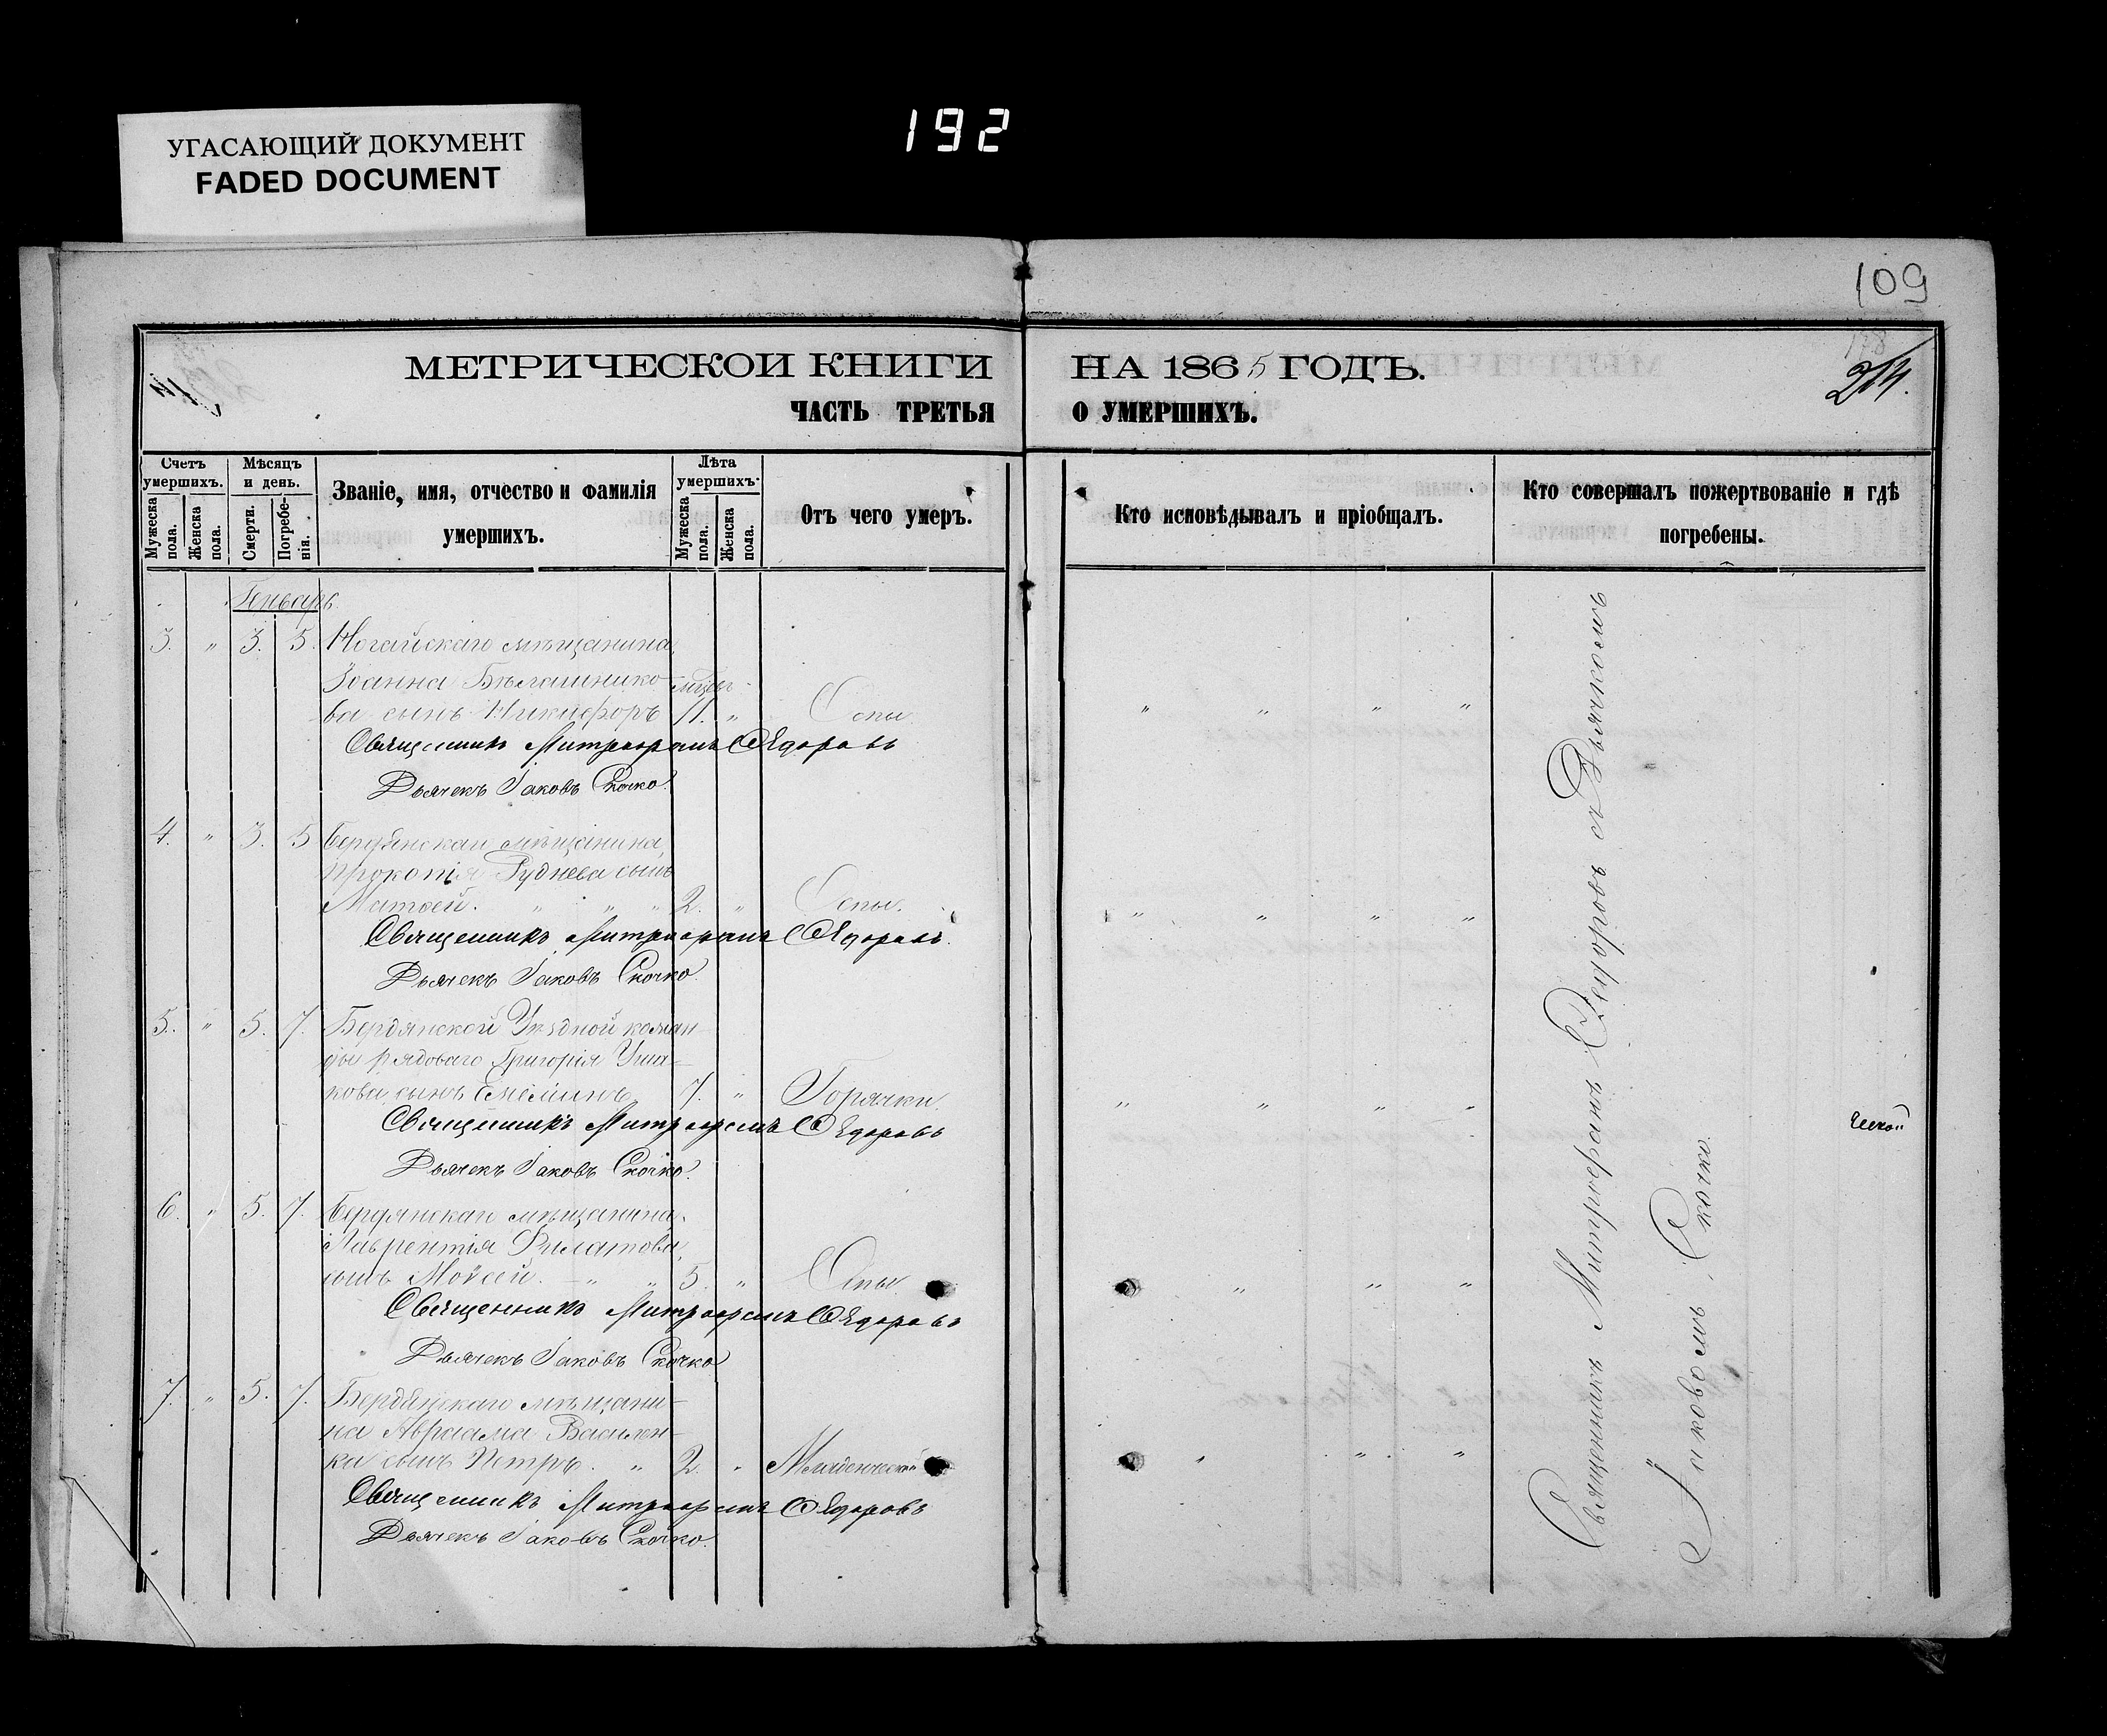 192
УГАСАЮЩИЙ ДОКУМЕНТ
FADED DOCUMENT
109
178
214.
МЕТРИЧЕСКОЙ КНИГИ НА 1865 ГОДЪ.
ЧАСТЬ ТРЕТЬЯ О УМЕРШИХЪ.
Счетъ умершихъ.
Мужеска пола.
Женска пола.
Мѣсяцъ и день.
Смерти.
Погребенія.
Званіе, имя, отчество и фамилія
умершихъ.
Лѣта умершихъ.
Мужеска пола.
Женска пола.
Отъ чего умеръ.
Кто исповѣдывалъ и пріобщалъ.
Кто совершалъ пожертвованіе и гдѣ
погребены.
Генварь
3. " 3. 5. Ногайскаго мѣщанина
Іоанна Бѣлашнико-
ва сынъ Никифоръ 11. " Оспы " " " "
Священникъ Митрофанъ Ѳедоровъ
Дьячекъ Іаковъ Скочко.
4. " 3. 5 Бердянскаго мѣщанина
Прокопія Руднева сынъ
Матѳей. " " " 2. " Оспы. " " " "
Священникъ Митрофанъ Ѳедоровъ.
Дьячекъ Іаковъ Скочко.
5. " 5. 7. Бердянской Уѣздной коман-
ды рядоваго Григорія Уша-
кова сынъ 7. " Горячки. " " " "
Священникъ Митрофанъ Ѳедоровъ
Дьячекъ Іаковъ Скочко.
6. " 5. 7. Бердянскаго мѣщанина
Лаврентія Филатова
сынъ Моѵсей. " " 5. " Оспы " " "
Священникъ Митрофанъ Ѳедоровъ
Дьячекъ Іаковъ Скочко
7. " 5. 7. Бердянскаго мѣщани-
на Авраама Василен-
ка сынъ Петръ. " 2. " Младенческой " " "
Священникъ Митрофанъ Ѳедоровъ
Дьячекъ Іаковъ Скочко.
Священникъ Митрофанъ Ѳедоровъ съ Дьячкомъ
Іаковомъ Скочко.